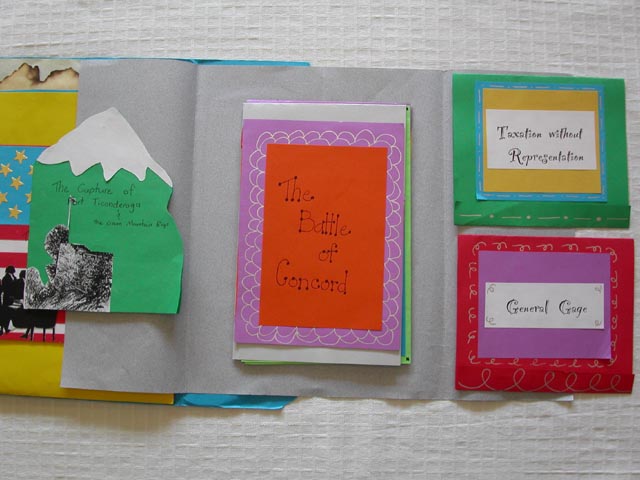 The Capture of
Fort Ticonderoga
&
the Green Mountain Boys
The
Battle
of
Concord
Taxation without
Representation
General Gage